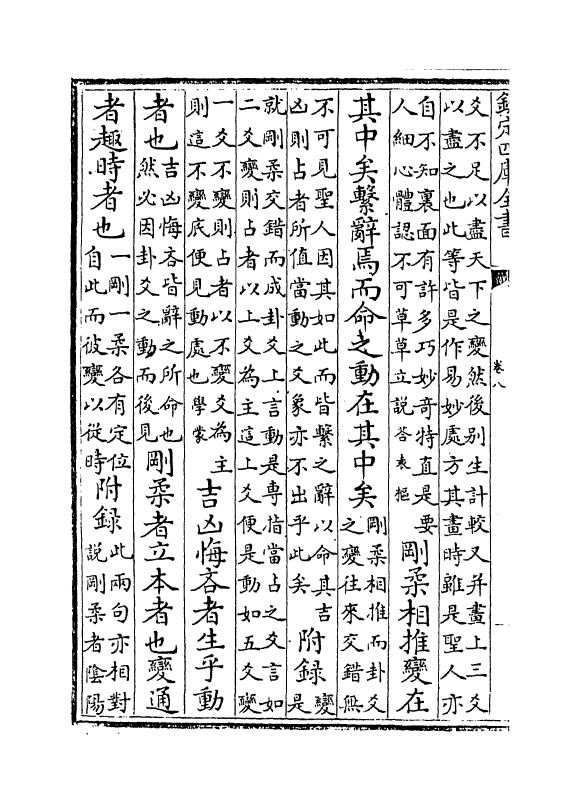 欽定四庫全書
卷八
爻不足以盡天下之變然後别生計較又并畫上三爻
以盡之也此等皆是作易妙處方其畫時雖是聖人亦
自不知裏面有許多巧妙奇特直是要
人細心體認不可草草立説答袁樞
剛柔相推變在
其中矣繫辭焉而命之動在其中矣
剛柔相推而卦爻
之變往來交錯無
不可見聖人因其如此而皆繫之辭以命其吉
凶則占者所值當動之爻象亦不出乎此矣
附録
變
是
就剛柔交錯而成卦爻上言動是專指當占之爻言如
二爻變則占者以上爻為主這上爻便是動如五爻變
一爻不變則占者以不變爻為主
則這不變底便見動處也學蒙
吉凶悔吝者生乎動
者也
吉凶悔吝皆辭之所命也
然必因卦爻之動而後見
剛柔者立本者也變通
者趣時者也
一剛一柔各有定位
自此而彼變以從時
附録
此兩句亦相對
説剛柔者陰陽